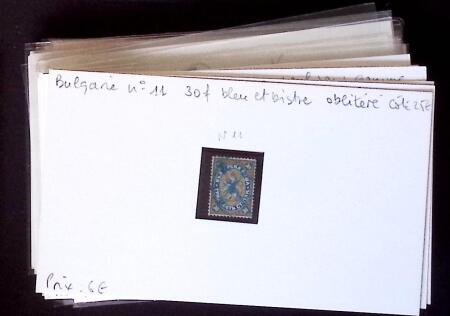 Bulgarie n° 11 30f bleu et bistre oblitéré Côte 25€
N° 11
Prix : 6€